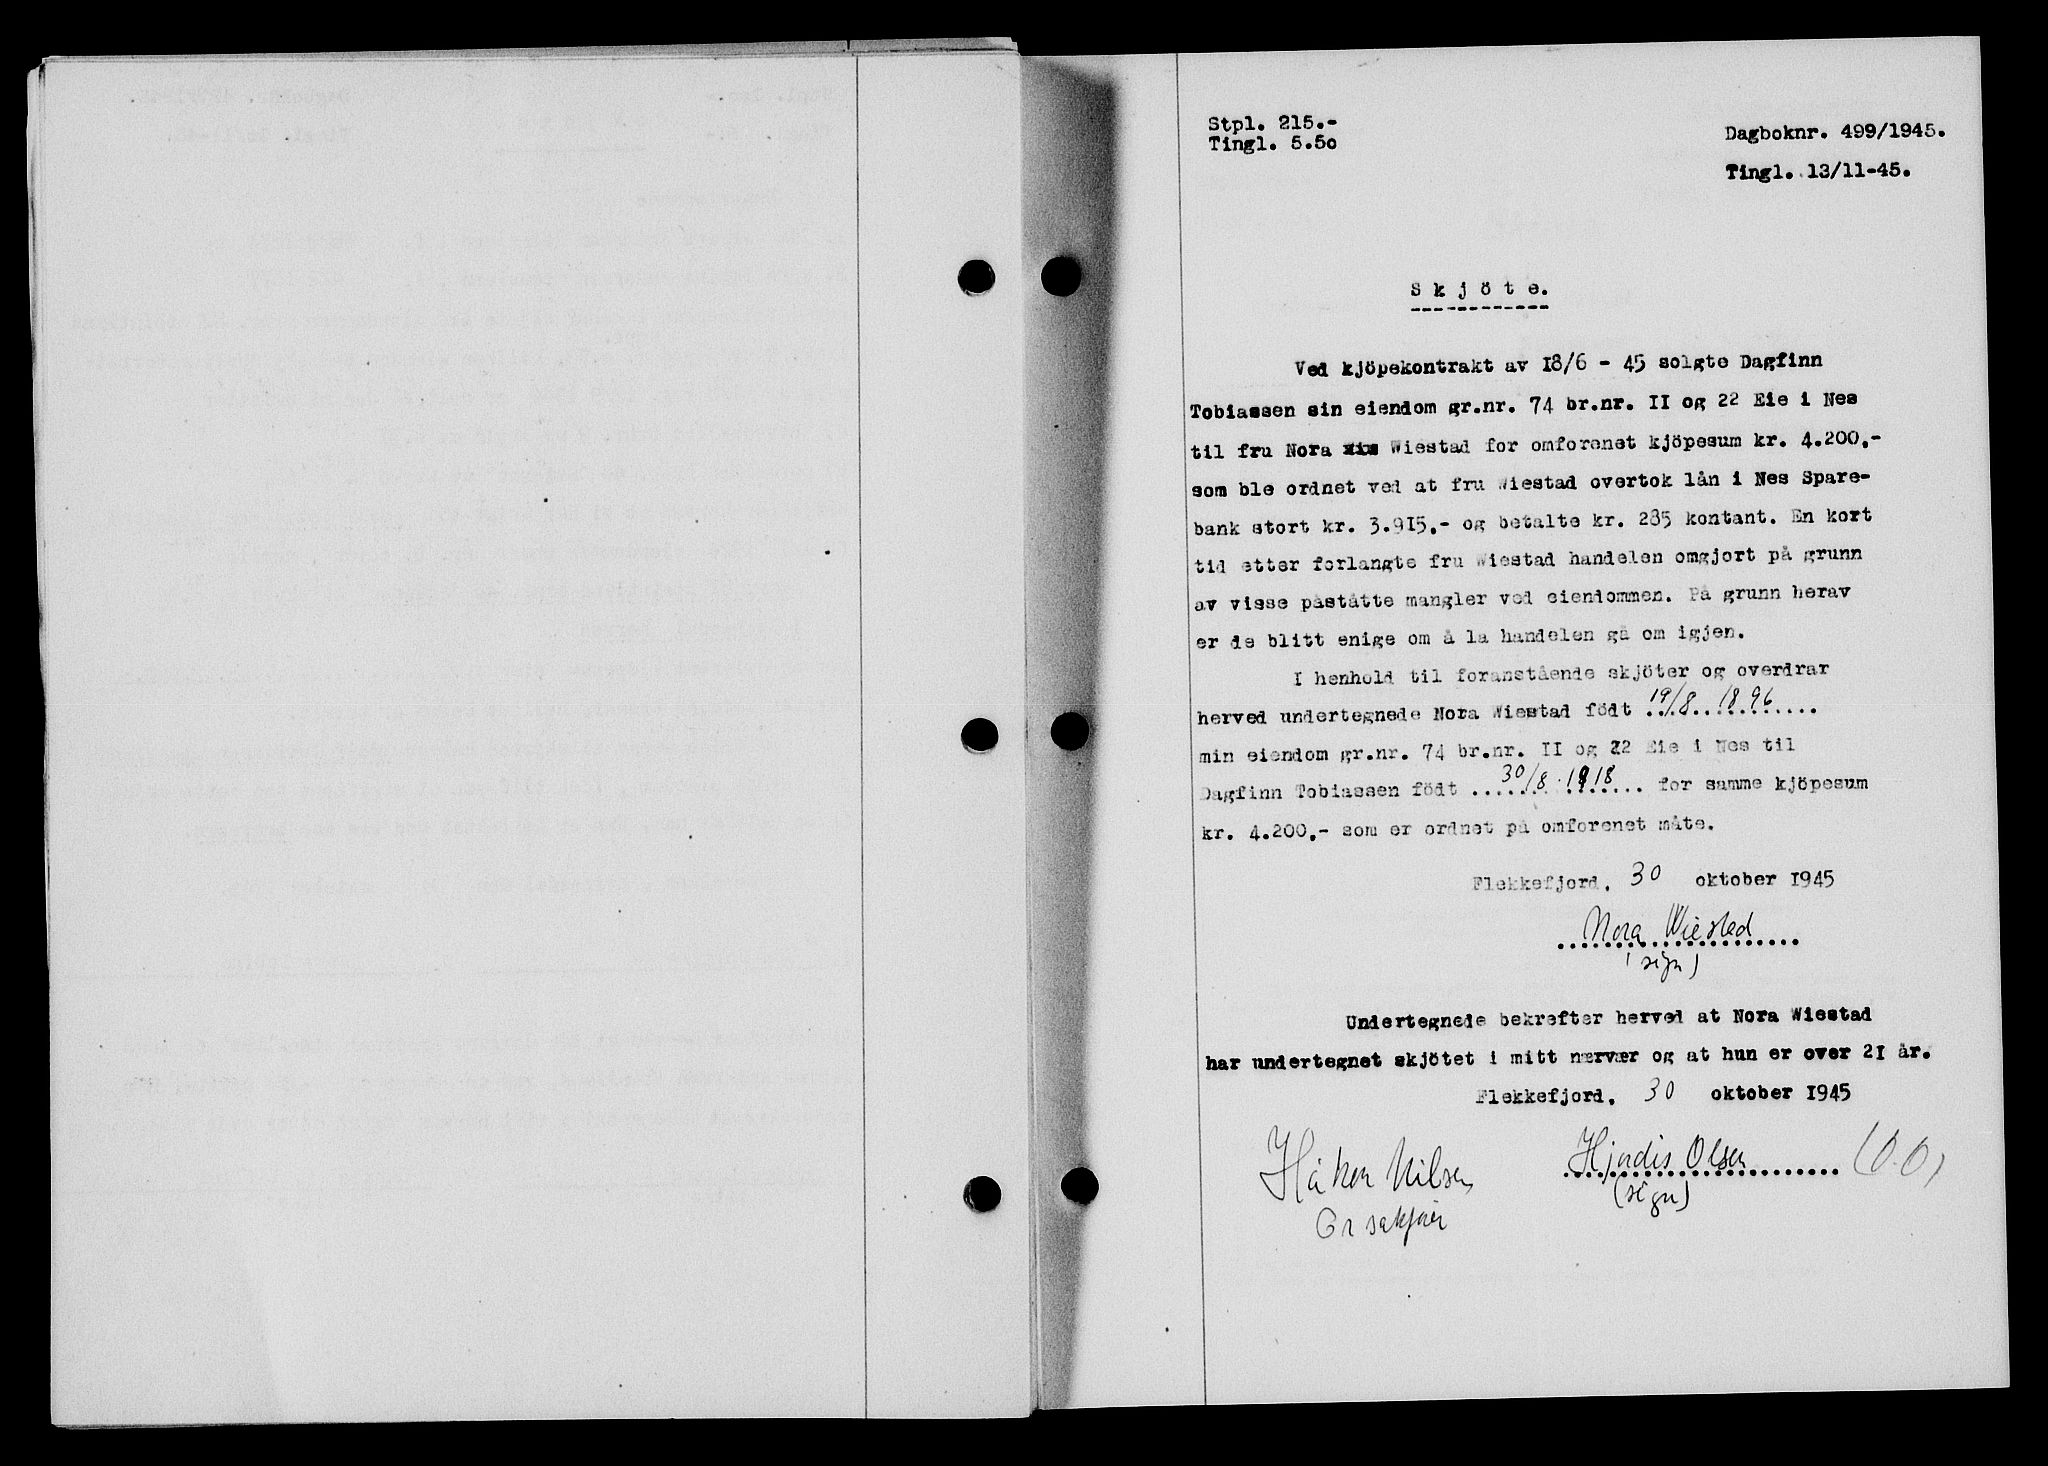 Stpl. 215.-
Tingl. 5.50
Dagboknr. 499/1945.
Tingl. 13/11-45.
Skjöte.
Ved kjöpekontrakt av 18/6 - 45 solgte Dagfinn
Tobiassen sin eiendom gr.nr. 74 br.nr. II og 22 Eie i Nes
til fru Nora Wiestad for omforenet kjöpesum kr. 4.200,-
som ble ordnet ved at fru Wiestad overtok lån i Nes Spare-
bank stort kr. 3.915,- og betalte kr. 285 kontant. En kort
tid etter forlangte fru Wiestad handelen omgjort på grunn
av visse påståtte mangler ved eiendommen. På grunn herav
er de blitt enige om å la handelen gå om igjen.
I henhold til foranstående skjöter og overdrar
herved undertegnede Nora Wiestad födt 19/8 1896
min eiendom gr.nr. 74 br.nr. II og 22 Eie i Nes til
Dagfinn Tobiassen födt 30/8 1918 for samme kjöpesum
kr. 4.200,- som er ordnet på omforenet måte.
Flekkefjord, 30 oktober 1945
Nora Wiestad
(sign)
Undertegnede bekrefter herved at Nora Wiestad
har undertegnet skjötet i mitt nærvær og at hun er over 21 år.
Flekkefjord, 30 oktober 1945
Håkon Nilsen
Hjördis Olsen
(sign)
Or sakförer